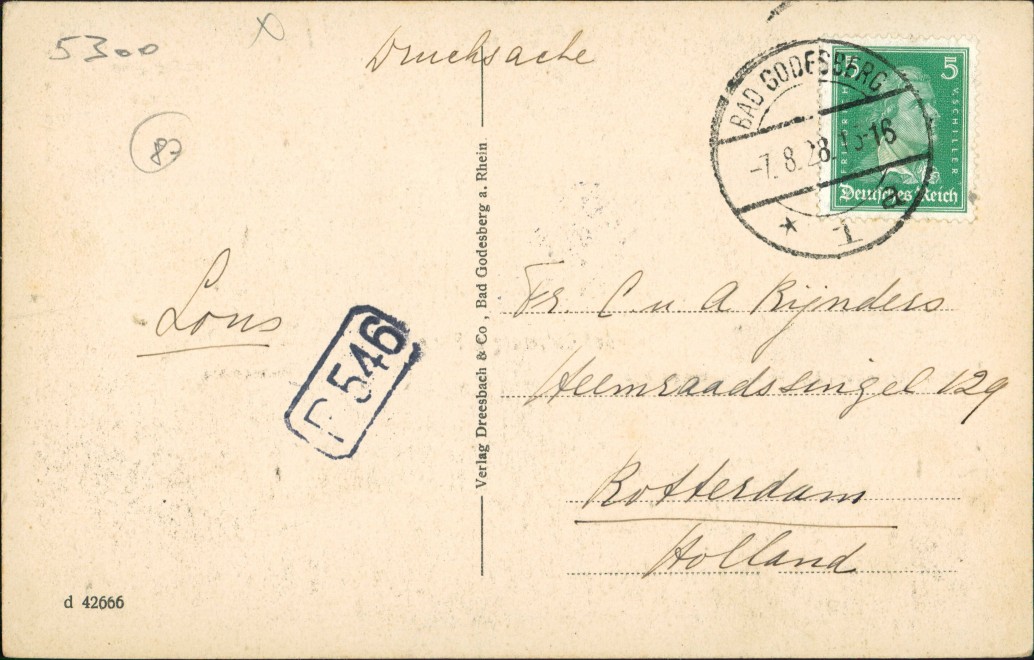 5300
Drucksache
87
BAD GODESBERG
-7.8.28.15-16
* 1 a
5 5
FRIEDRICH V. SCHILLER
Deutsches Reich
Lous
D 546
Verlag Dreesbach & Co, Bad Godesberg a. Rhein
Fr. C u. A Rijnders
Heemraadssingel 129
Rotterdam
Holland
d 42666